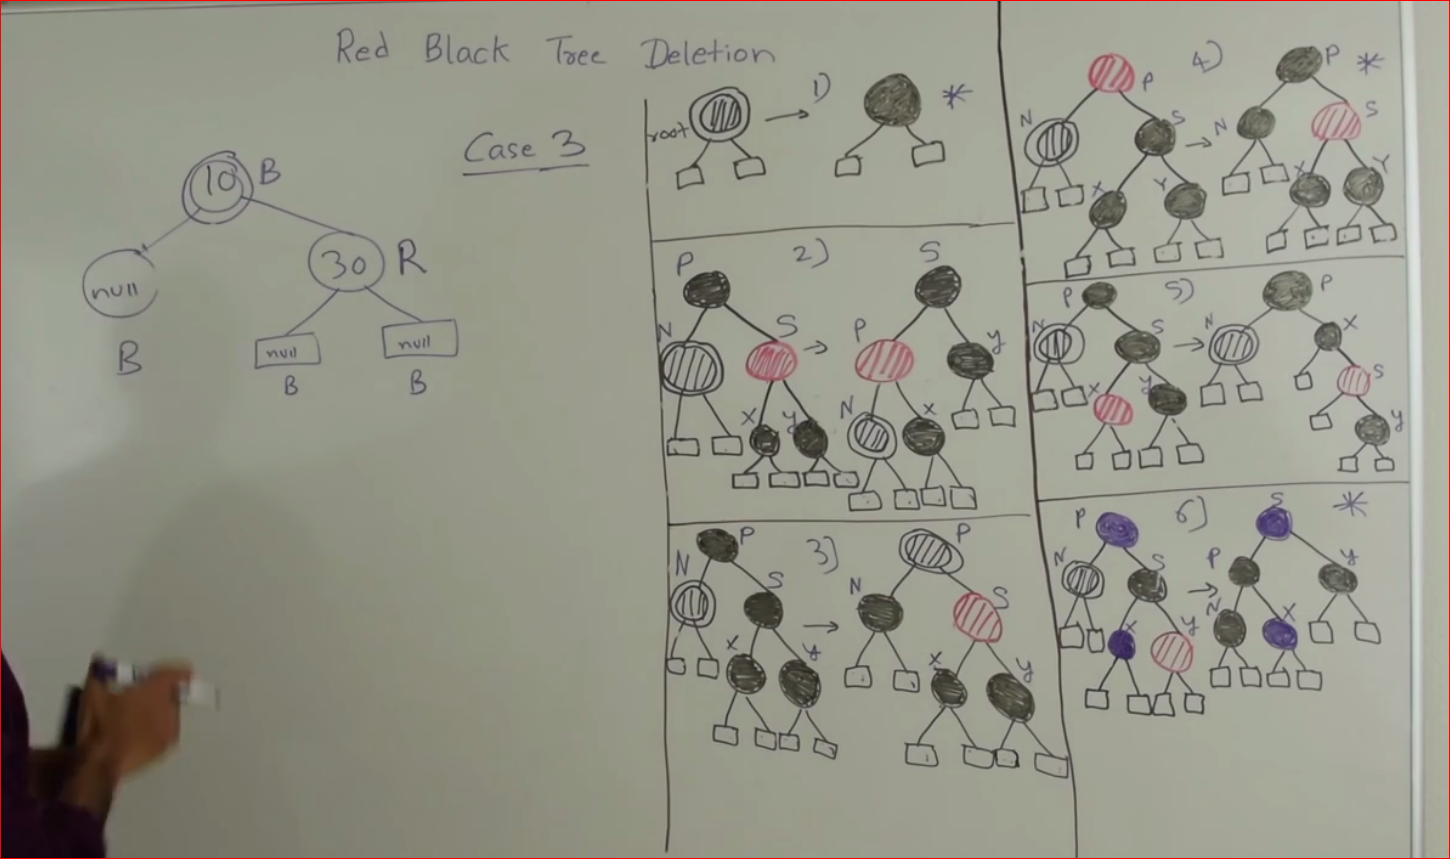 Red Black Tree Deletion
Case 3
10 B
null
B
30 R
null
B
null
B
root
1)
*
2)
P
N
S
X
y
S
P
y
N
x
3)
P
N
S
X
y
P
N
S
x
y
4)
P
N
S
X
Y
P
*
N
S
X
Y
5)
P
N
S
X
y
P
N
X
S
y
6)
P
N
S
X
y
S
*
P
y
N
X